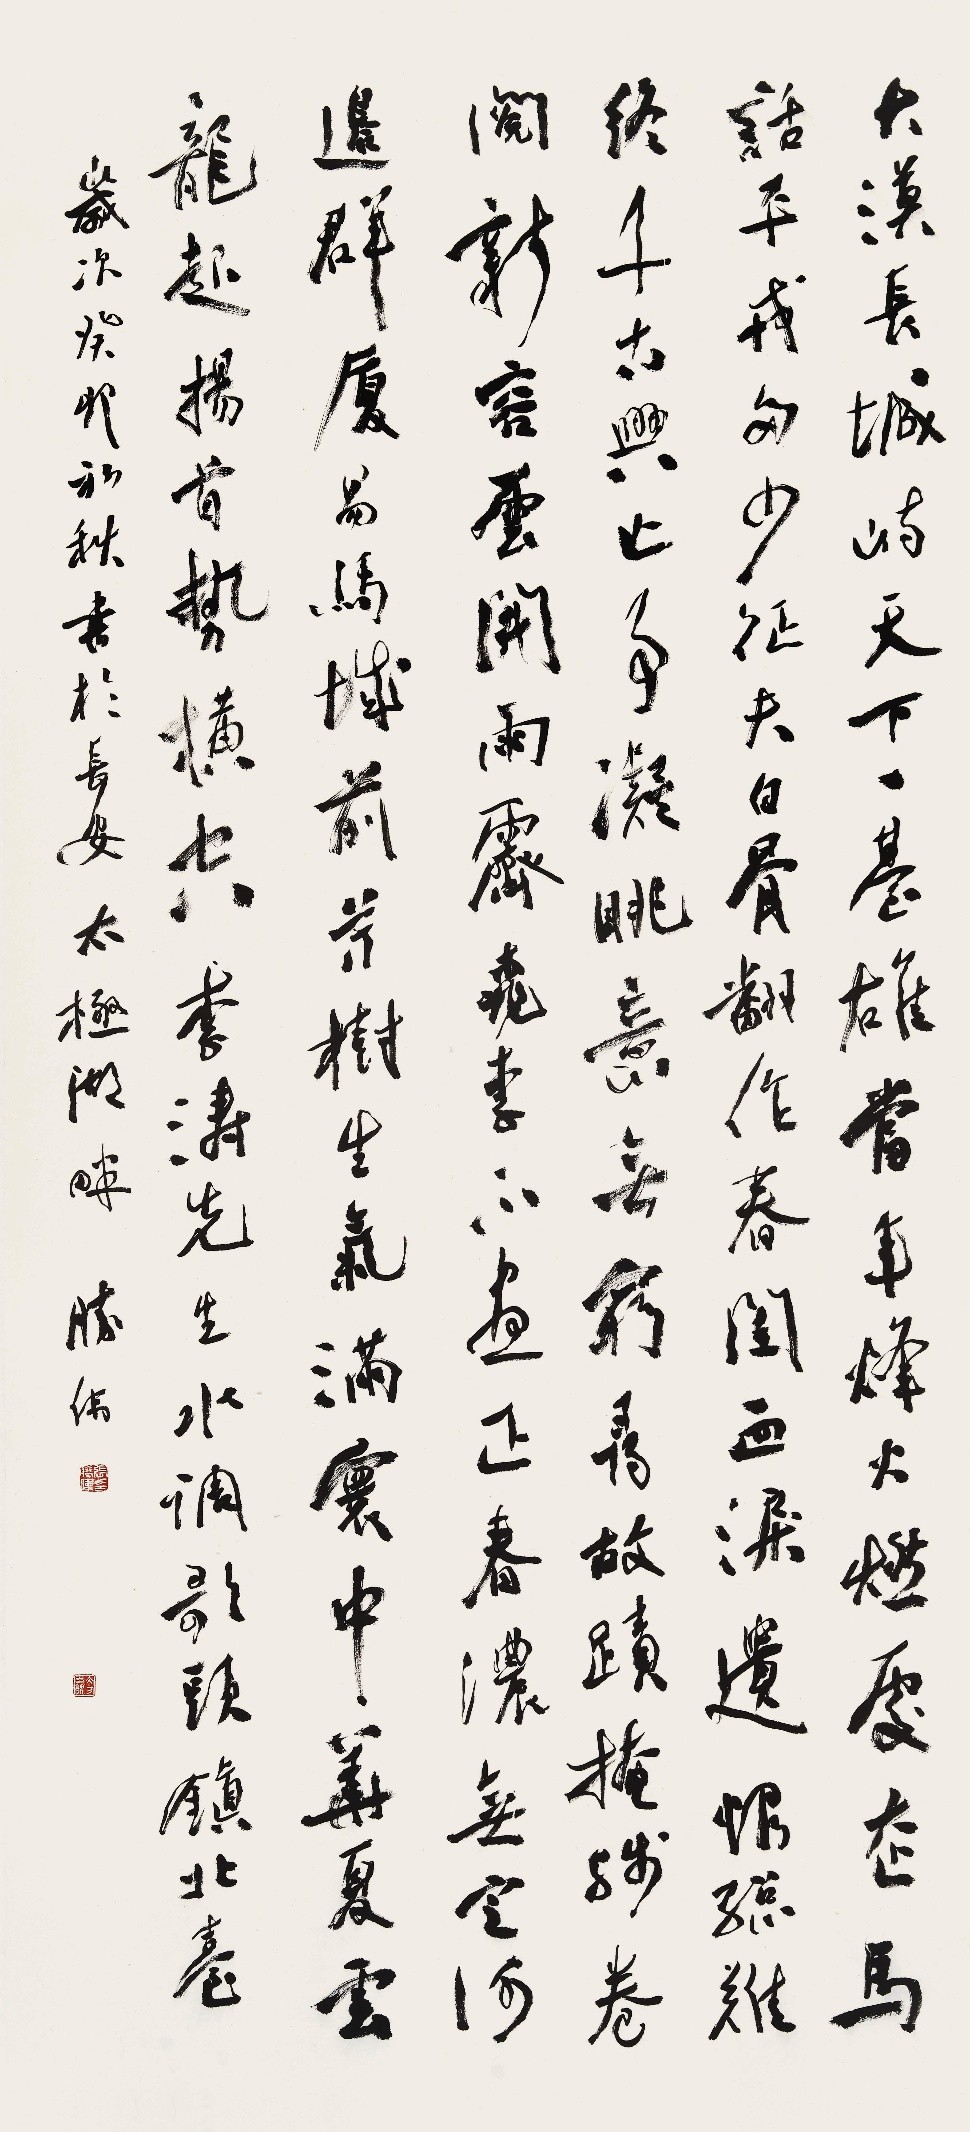 大漠長城峙天下一臺雄當年烽火燃處走馬
話平戎多少征夫白骨翻作春閨血淚遺恨總難
終千古興亡事凝眺意無窮尋故蹟掩殘卷
閱新容雲開雨霽桃李不盡正春濃無定河
邊群廈昜馬城前芳樹生氣滿寰中華夏雲
龍起揚首勢橫空李濤先生水調歌頭鎮北臺
歲次癸卯初秋書於長安太極湖畔 勝偉